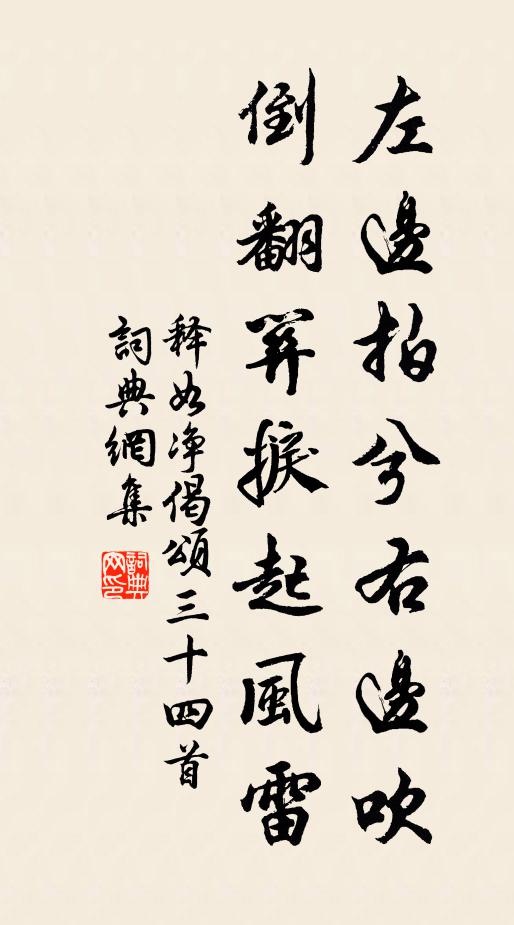 左邊拍兮右邊吹
倒翻筭捩起風雷
释如净偈頌三十四首
詞典網集
詞典网印